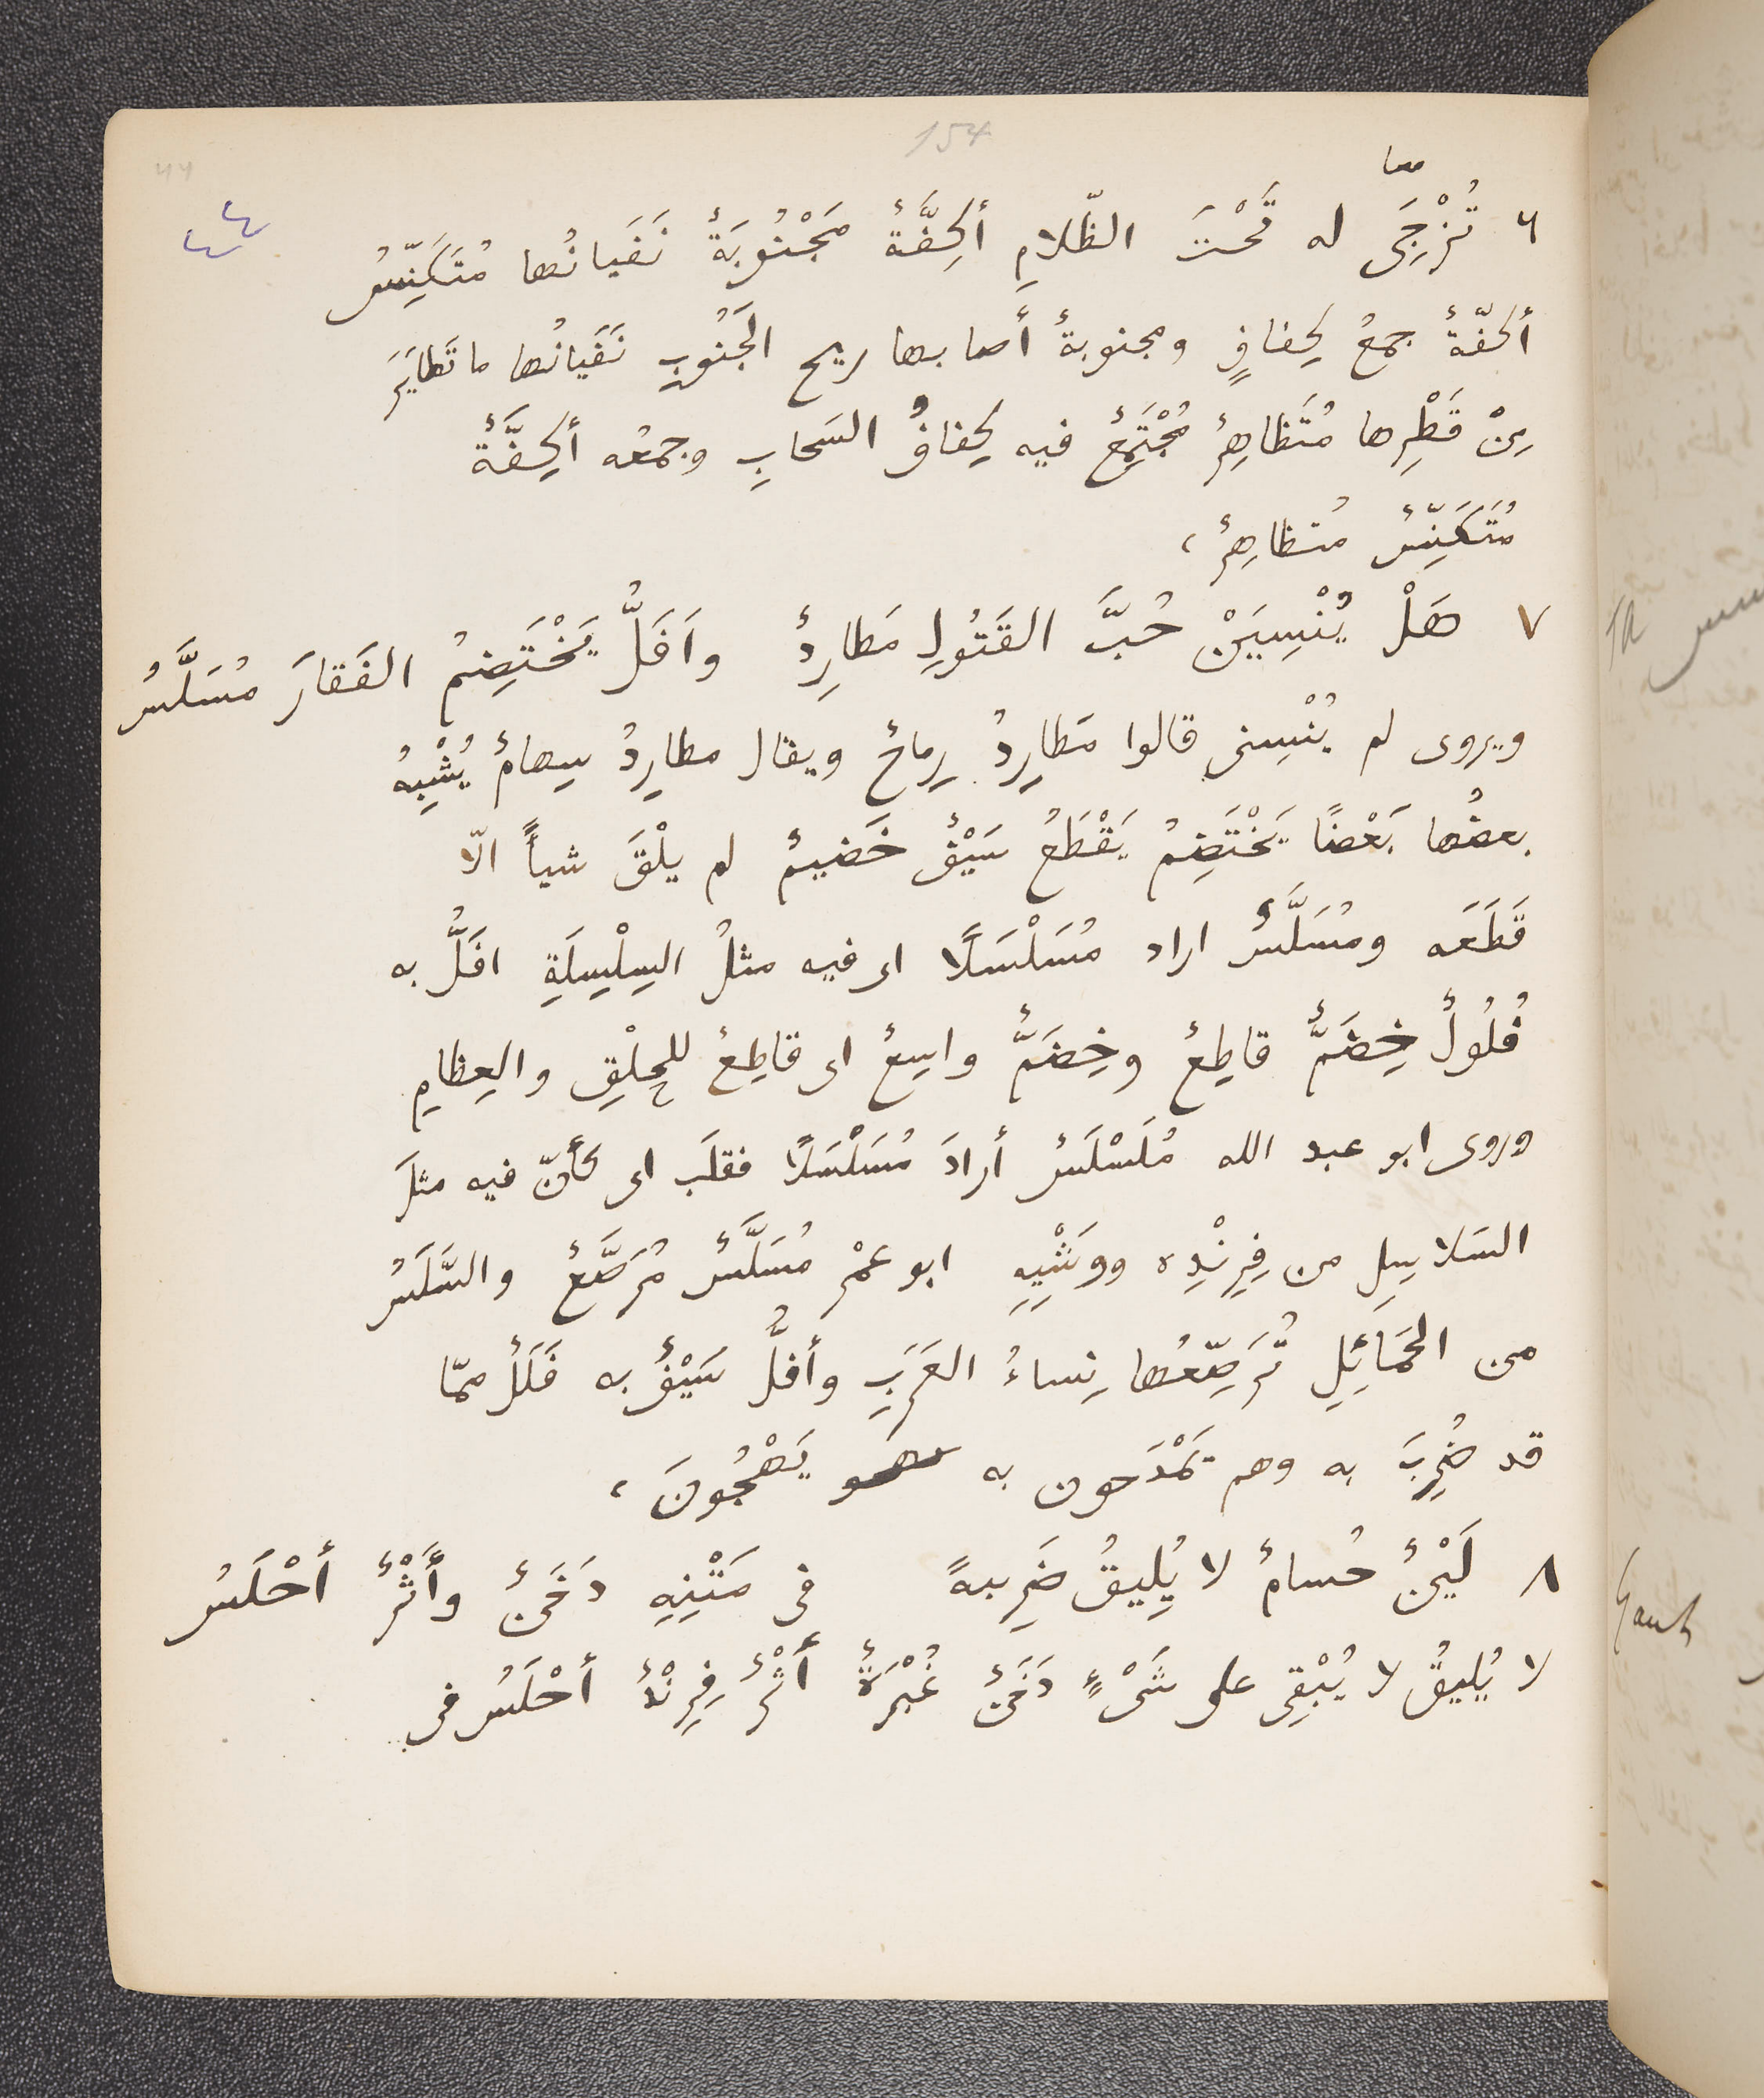 154
٤٤
معا
٦ تُزْجَى له تَحْتَ الظّلامِ أكِفَّةٌ مَجْنُوبَةٌ نَفَيانُها مُتَكَنِّسُ
أكفّةٌ جمعُ كِفافٍ ومجنوبةٌ أصابها ريح الجَنُوبِ نَفَيانُها ما تَطايَرَ
مِنْ قَطْرِها مُتَظاهِرٌ مُجْتَمِعٌ فيه كِفافُ السَحابِ وجمعُه أكِفَّةٌ
مُتَكَنِّسٌ مُتظاهِرٌ،
٧ هَلْ يُنْسِيَنْ حُبَّ القَتُولِ مَطارِدٌ وأَفَلُّ يَخْتَضِمُ الفَقارَ مُسَلَّسُ
ويروى لم يُنْسِنى قالوا مَطارِدُ رِماحٌ ويقال مطارِدُ سِهامٌ يُشْبِهُ
بعضُها بَعْضًا يَخْتَضِمُ يَقْطَعُ سَيْفٌ خَضيمٌ لم يلْقَ شيأً الّا
قَطَعَه ومُسَلَّسٌ اراد مُسَلْسَلًا اى فيه مثلُ السِلْسِلَةِ افَلُّ به
فُلُولٌ خِضَمٌّ قاطِعٌ وخِضَمٌّ واسِعٌ اى قاطِعٌ للحِلْقِ والعِظامِ
وروى ابو عبد الله مُلَسْلَسٌ أرادَ مُسَلْسَلًا فقلَب اى كأنّ فيه مثلَ
السَلاسِلِ من فِرِنْدِه ووَشْيِهِ ابو عمْرٍ مُسَلَّسٌ مُرَصَّعٌ والسَّلَسُ
من الحَمَائِلِ تُرَصِّعُها نِساءُ العَرَبِ وأفلُّ سَيْفٌ به فَلَلٌ ممّا
قد ضُرِبَ به وهم يَمْدَحون به يَهْجُونَ،
٨ لَيْنٌ حُسامٌ لا يُلِيقُ ضَرِيبةً فى مَتْنِهِ دَخَنٌ وأَثْرٌ أحْلَسُ
لا يُليقُ لا يُبْقِى على شَىْءٍ دَخَنٌ غُبْرَةٌ أَثْرٌ فِرِنْدٌ أحْلَسُ فى